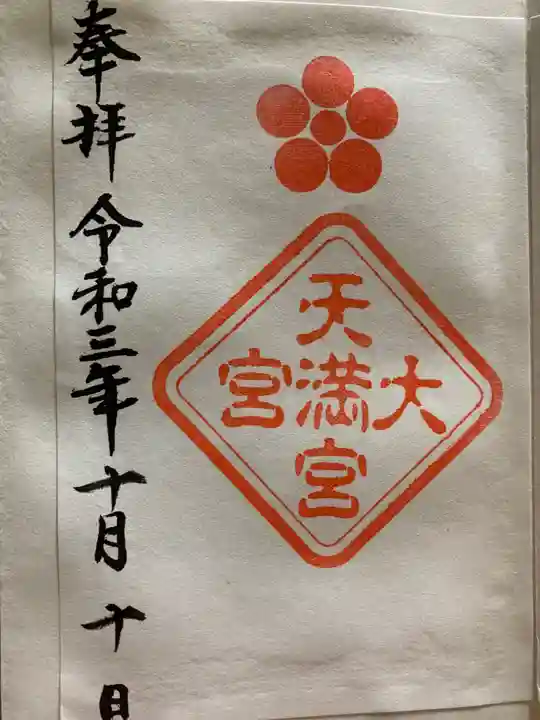 奉拝 令和三年十月十日
天満宮
大 宮